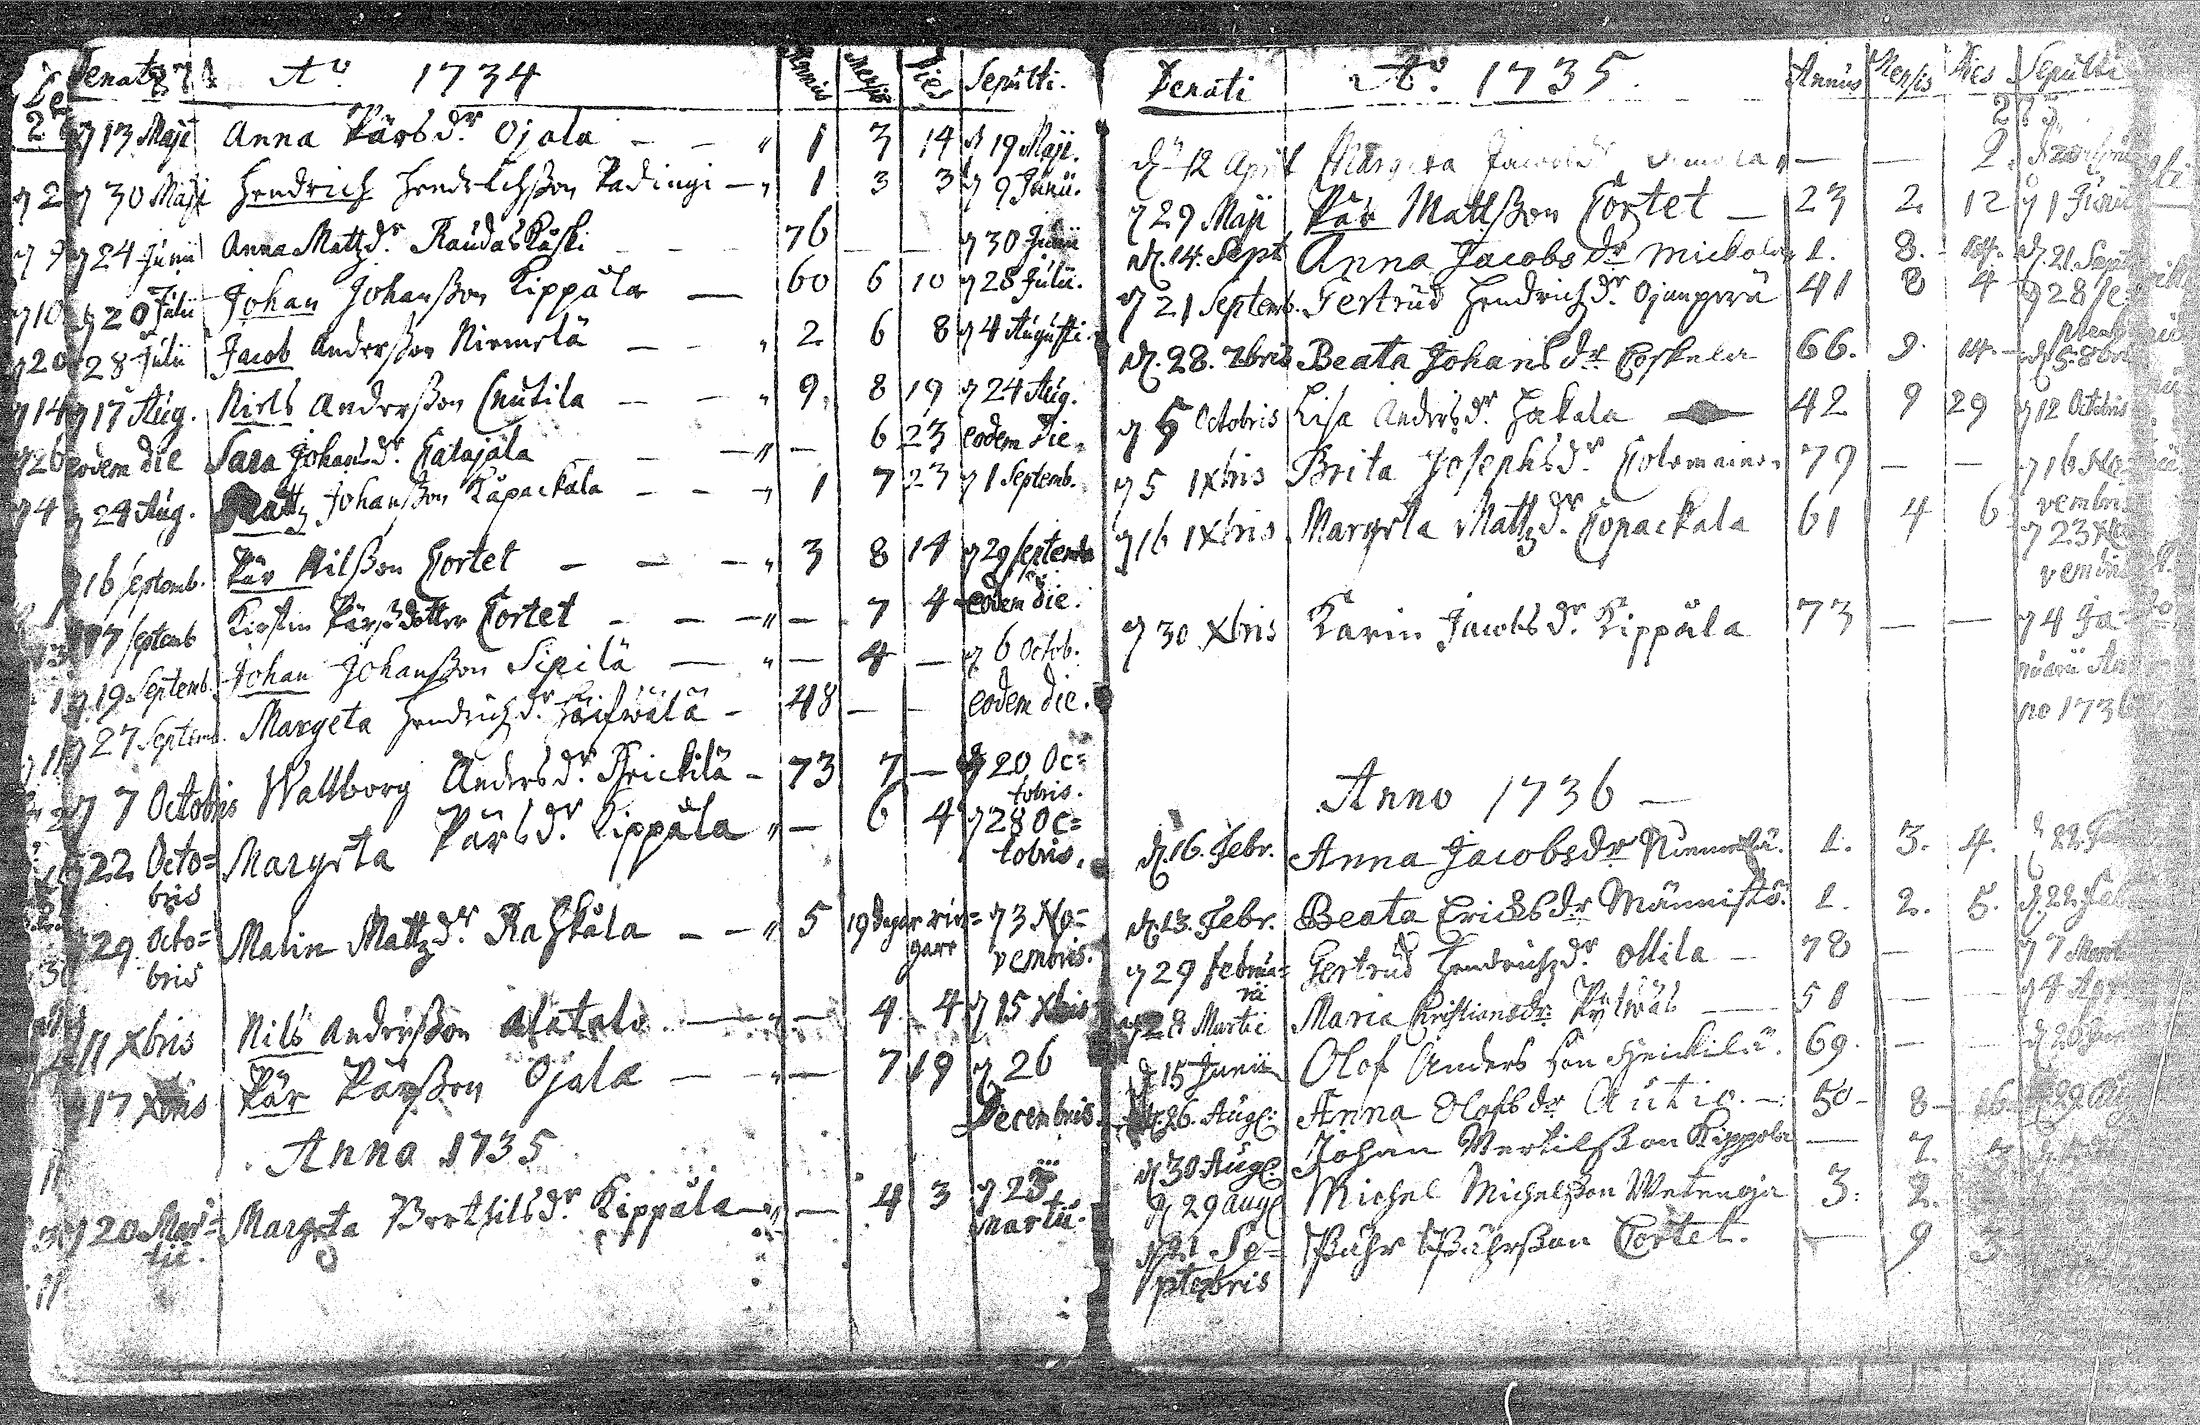 Denati Ao 1734 Annus Mensis Dies Sepulti.
13 Maji Anna Pärsdr Ojala 1 3 14 19 Maji.
30 Maji Hendrich Hendrichsson Padingi 1 3 3 9 Junii.
24 Junii Anna Mattzdr Raudaskoski 76 30 Junii
20 Julii Johan Johansson Kippåla 60 6 10 28 Julii.
28 Julii Jacob Andersson Niemelä 2 6 8 4 Augusti.
17 Aug. Niels Andersson Cnutila 9 8 19 24 Aug.
eodem die Sara Johansdr. Catajala 6 23 eodem die
24 Aug. Mattz Johansson Kåpackala 1 7 23 1 Septemb.
16 Septemb. Pär Nilsson Cortet 3 8 14 29 Septemb
17 Septemb Kirstin Pärsdotter Cortet 7 4 eodem die.
19 Septemb. Johan Johansson Sipilä 4 6 Octob.
27 Septemb. Margeta Hendrichzdr. 48 eodem die.
7 Octobris Wallborg Andersdr. Heickilä 73 7 20 Oc=
tobris.
22 Octo= Margeta Pärsdr. Kippåla 6 4 28 Oc=
bris tobris.
29 Octo= Malin Mattzdr. Raskåla 5 19 dagar rin= 3 No=
bris gare vembris.
11 Xbris Nils Andersson Alatalo 4 4 15 Xbris
17 Xbris Pär Pärsson Ojala 7 19 26
Decembris.
Anno 1735
20 Mar= Margeta Berthilsdr. Kippåla 4 3 23
tii. Martii.
Denati Ao. 1735. Annus Mensis Dies Sepulti
d. 12 April Margeta Jacobsdr 2.
29 Maji Pär Mattsson Cortet 23 2 12 1 Junii
d. 14. Sept Anna Jacobsdr Mickola 1. 8. 14. d. 21 Sept
21 Septemb. Gertrud Hendrichzdr. Ojanperä 41 8 4 28 Se=
ptemb
d. 28. 7bris Beata Johansdr Coskela 66. 9. 14. d. 5. 8bris
5 Octobris Lisa Andersdr. Jakala 42 9 29 12 Octobris
5 IXbris Brita Josephsdr. 79 16 No=
vembris
16 IXbris Margeta Mattzdr. Copackala 61 4 6 23 No=
vembris
30 Xbris Karin Jacobsdr. Kippåla 73 4 Ja=
nuarii An=
no 1736
Anno 1736
d. 16. Febr. Anna Jacobsdr Niemelä. 1. 3. 4. 22. Feb
d. 13. Febr. Beata Ericksdr Männistö. 1. 2. 5. d. 22. Feb
29 Februa= Gertrud Hendrichzdr. Ollila 78 7 Mart
rii
28 Martii Maria Christiansdr. 50 4
d. 15 Junii Olof Andersson Heickilä. 69. d. 20 Jun
d. 26. Aug. Anna Olofsdr Autio. 50 8 16 29
d. 30 Aug. Johan Bertilsson Kippola 7.
d. 29 Aug. Michel Michelsson Wetenoja 3. 2.
21 Se= Påhr Påhrsson Cortet. 9 3
ptembris